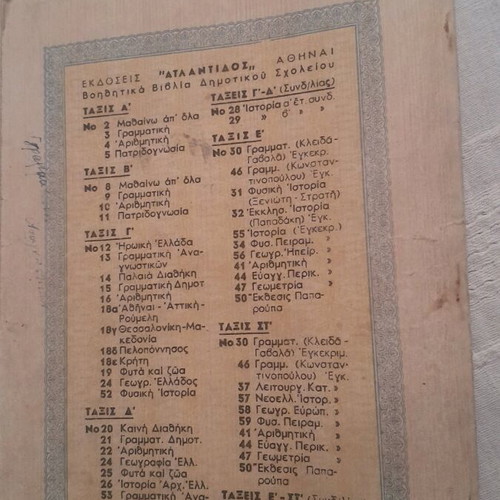 ΕΚΔΟΣΕΙΣ "ΑΤΛΑΝΤΙΔΟΣ,, ΑΘΗΝΑΙ
Βοηθητικά Βιβλία Δημοτικού Σχολείου
ΤΑΞΙΣ Α'
Νο 2 Μαθαίνω ἀπ' ὅλα
3 Γραμματική
4 Ἀριθμητική
5 Πατριδογνωσία
ΤΑΞΙΣ Β'
Νο 8 Μαθαίνω ἀπ' ὅλα
9 Γραμματική
10 Ἀριθμητική
11 Πατριδογνωσία
ΤΑΞΙΣ Γ'
Νο 12 Ἡρωική Ἑλλάδα
13 Γραμματική Ἀνα-
γνωστικῶν
14 Παλαιά Διαθήκη
15 Γραμματική Δημοτ
16 Ἀριθμητική
18α Ἀθῆναι - Ἀττική -
Ρούμελη
18γ Θεσσαλονίκη - Μα-
κεδονία
18δ Πελοπόννησος
18ε Κρήτη
19 Φυτά καί ζῶα
24 Γεωγρ. Ἑλλάδος
52 Φυσική Ἱστορία
ΤΑΞΙΣ Δ'
Νο 20 Καινή Διαθήκη
21 Γραμματ. Δημοτ.
22 Ἀριθμητική
24 Γεωγραφία Ἑλλ.
25 Φυτά καί ζῶα
26 Ἱστορία Ἀρχ. Ἑλλ.
53 Γραμματική Ἀνα-
ΤΑΞΕΙΣ Γ'-Δ' (Συνδ/λίας)
Νο 28 Ἱστορία α' ἔτ. συνδ.
29 » β' »
ΤΑΞΙΣ Ε'
Νο 30 Γραμματ. (Κλειδᾶ-
Γαβαλᾶ) Ἐγκεκρ.
46 Γραμμ. (Κωνσταν-
τινοπούλου) Ἐγκ.
31 Φυσική Ἱστορία
(Ξενιώτη - Στρατῆ)
32 Ἐκκλησ. Ἱστορία
(Παπαδάκη) Ἐγκ.
55 Ἱστορία (Ἐγκεκρ.)
34 Φυσ. Πειραμ. »
56 Γεωγρ. Ἠπείρ. »
41 Ἀριθμητική »
44 Εὐαγγ. Περικ. »
47 Γεωμετρία »
50 Ἔκθεσις Παπα-
ρούπα »
ΤΑΞΙΣ ΣΤ'
Νο 30 Γραμματ. (Κλειδᾶ-
Γαβαλᾶ) Ἐγκεκριμ.
46 Γραμμ. (Κωνσταν-
τινοπούλου) Ἐγκ.
37 Λειτουργ. Κατ. »
57 Νεοελλ. Ἱστορ. »
58 Γεωγρ. Εὐρώπ. »
59 Φυσ. Πειραμ. »
41 Ἀριθμητική »
44 Εὐαγγ. Περικ. »
47 Γεωμετρία »
50 Ἔκθεσις Παπα-
ρούπα »
ΤΑΞΕΙΣ Ε'-ΣΤ'